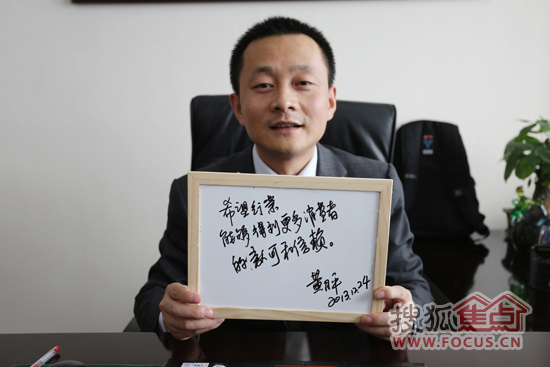 希望
能够得到更多消费者
的认可和信赖。
黄
2013.12.24
搜狐焦点
WWW.FOCUS.CN